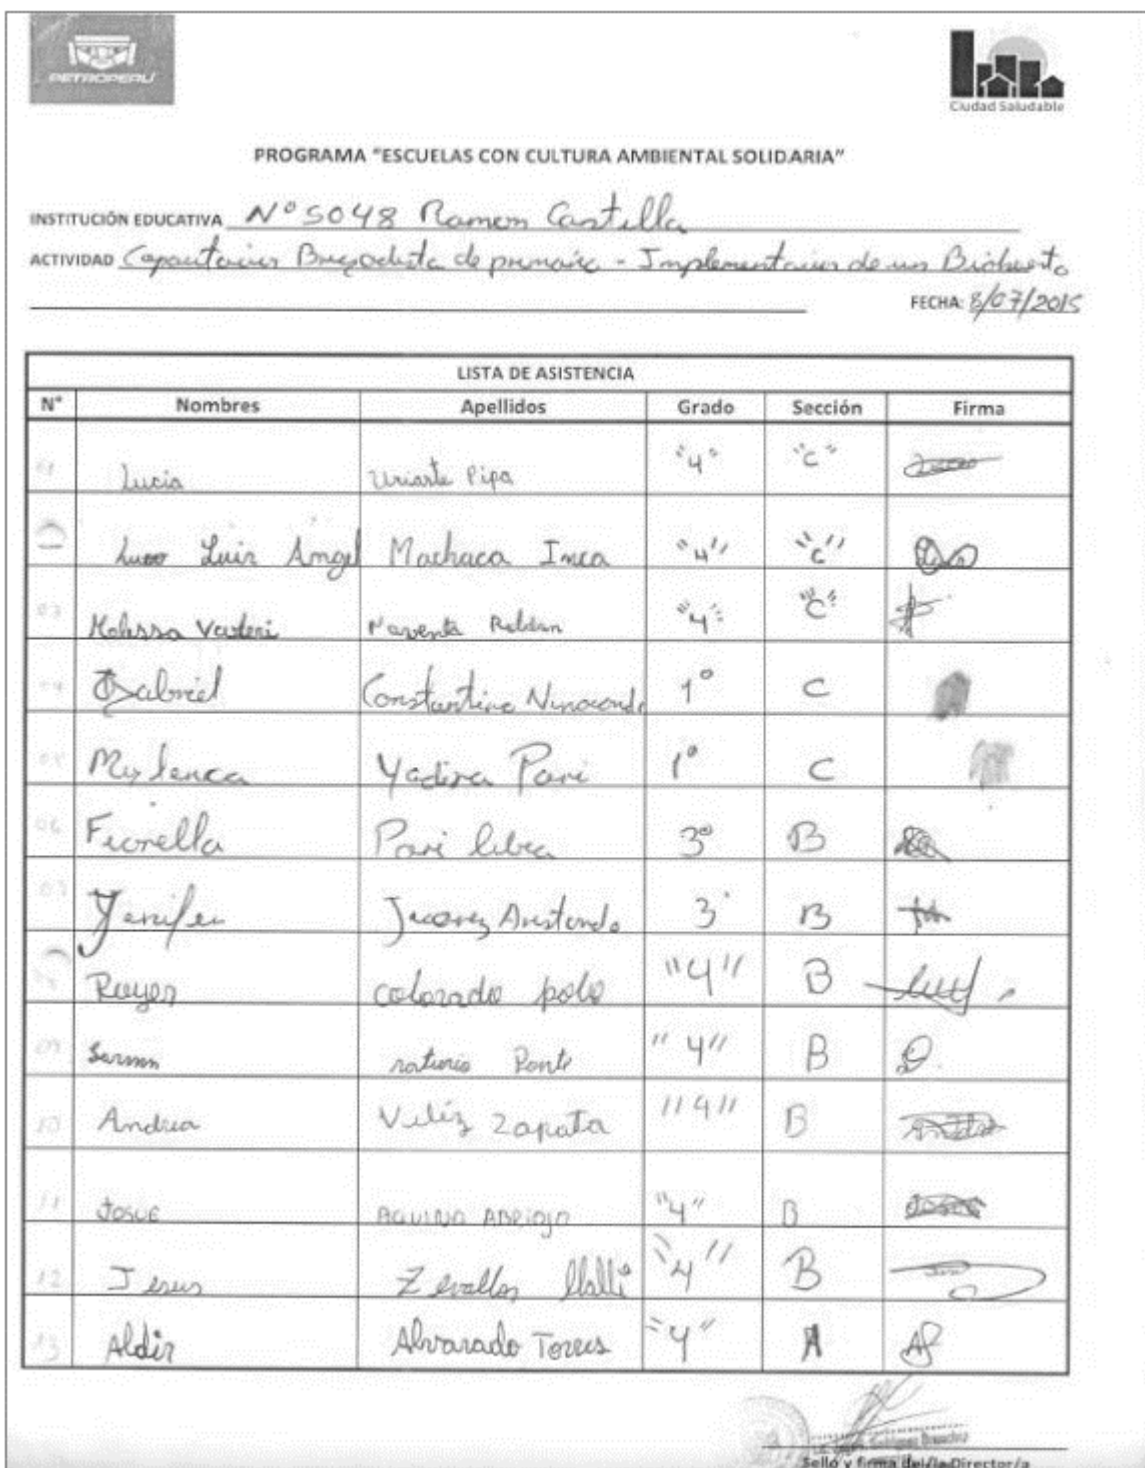 PETROPERU
Ciudad Saludable
PROGRAMA "ESCUELAS CON CULTURA AMBIENTAL SOLIDARIA"
INSTITUCIÓN EDUCATIVA N° 5048 Ramon Castilla
ACTIVIDAD Capacitacion Brigadista de primaria - Implementacion de un Biohuerto
FECHA: 8/07/2015
LISTA DE ASISTENCIA
N° Nombres Apellidos Grado Sección Firma
01 Lucia Uriarte Pipa "4" "C"
Luis Angel Machaca Inca "4" "C"
03 "4" "C"
04 Gabriel Constantino 1° C
05 Yadira Pari 1° C
06 Fiorella Pari 3° B
07 Yenifer 3° B
colorado polo "4" B
09 Ponte "4" B
10 Andrea Veliz Zapata "4" B
11 JOSUE AQUINO "4" B
12 Jesus Zevallos "4" B
13 Aldir Alvarado Torres "4" A
Sello y firma del/la Director/a